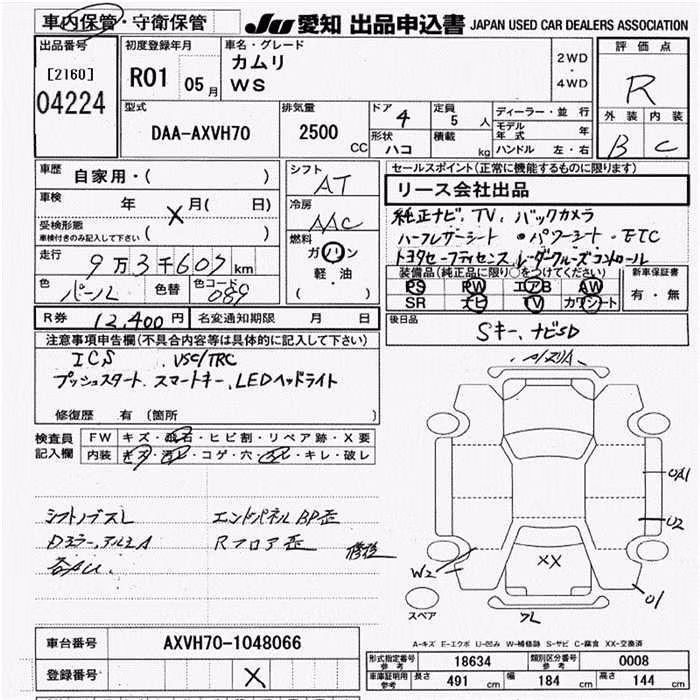 車内保管・守衛保管
JU 愛知 出品申込書 JAPAN USED CAR DEALERS ASSOCIATION
出品番号
[2160]
04224
初度登録年月
R01 05月
車名・グレード
カムリ
WS
2WD
・
4WD
評価点
R
外装 内装
B C
型式
DAA-AXVH70
排気量
2500 CC
ドア 4
形状 ハコ
定員 5 人
積載 kg
ディーラー・並行
モデル年式 年
ハンドル 左・右
車歴 自家用・( )
車検 年 X 月( 日)
受検形態
車検付きのみ記入して下さい ( )
走行 9万3千607km
色 パール 色替 色コード 089
R券 12,400円 名変通知期限 月 日
シフト AT
冷房 AAC
燃料
ガソリン
軽・油
( )
セールスポイント(正常に機能するものに限ります)
リース会社出品
純正ナビ、TV、バックカメラ
ハーフレザーシート・パワーシート・ETC
トヨタセーフティセンス、レーダークルーズコントロール
装備品(純正品に限り○をつけてください)
PS PW エアB AW
SR ナビ TV カワシート
新車保証書
有・無
後日品
Sキー、ナビSD
注意事項申告欄(不具合内容等は具体的に記入して下さい)
ICS 、VSC/TRC
プッシュスタート、スマートキー、LEDヘッドライト
修復歴 有(箇所 )
検査員記入欄
FW キズ・飛石・ヒビ割・リペア跡・X要
内装 キズ・汚レ・コゲ・穴・スレ・キレ・破レ
シフトノブスレ
Dミラー、アルミA
各AU
エンドパネルBP歪
Rフロア歪 修復
A/ZUA
UA1
U2
W2
XX
U1
スペア
フL
A-キズ E-エクボ U-凹み W-補修跡 S-サビ C-腐食 XX-交換済
車台番号 AXVH70-1048066
登録番号 X
形式指定番号 参考 18634 類別区分番号 参考 0008
車庫証明用 参考 長さ 491 cm 幅 184 cm 高さ 144 cm